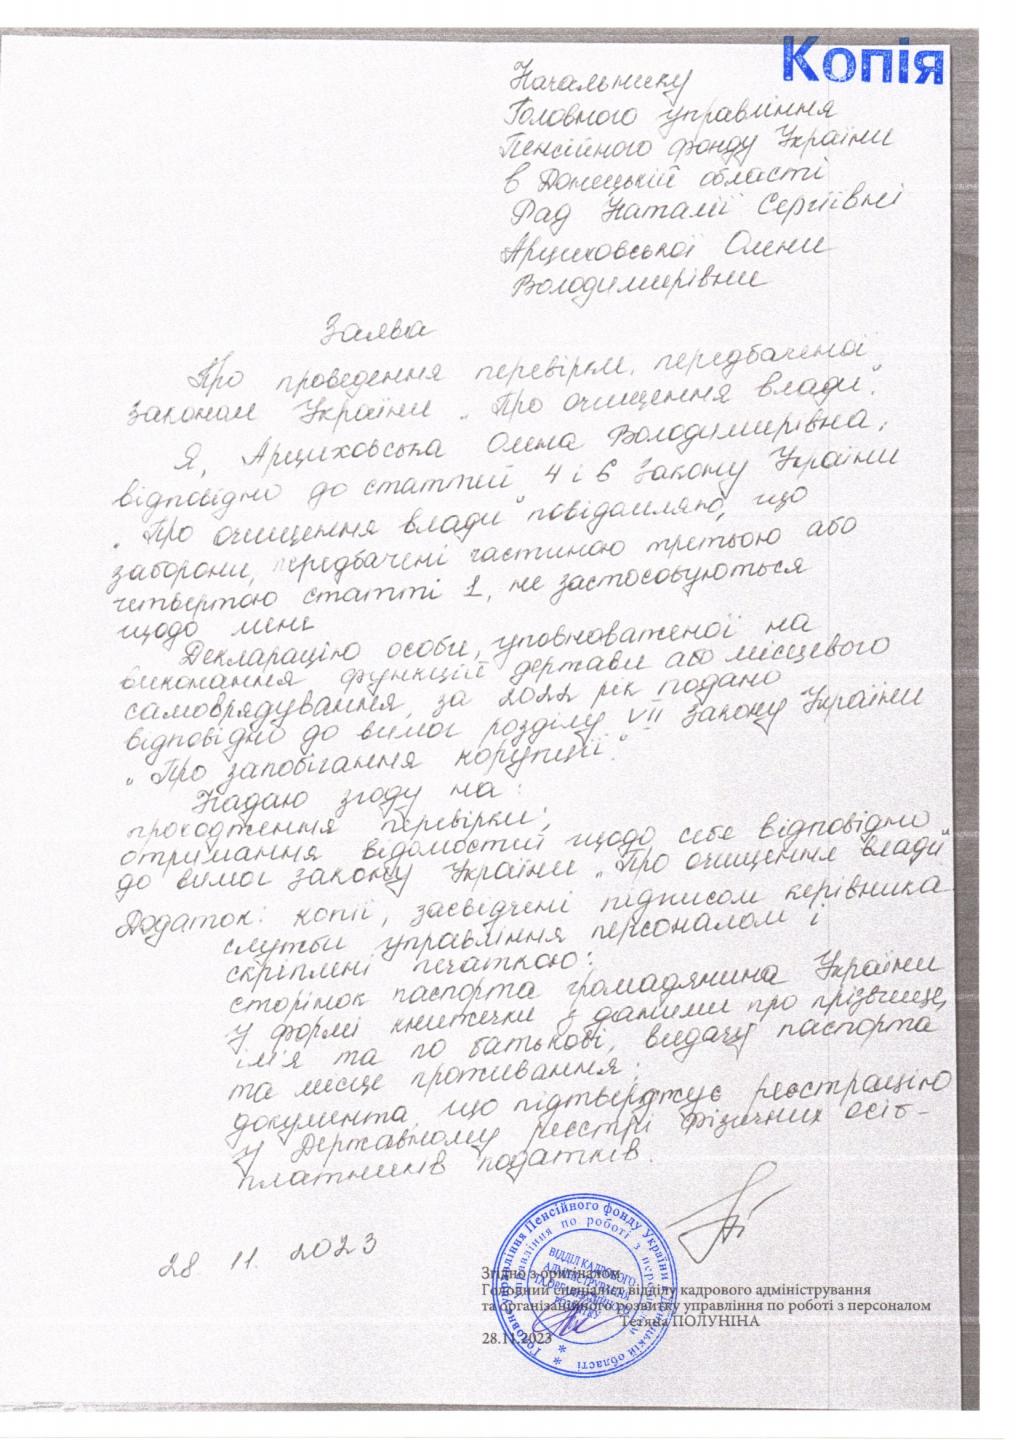 Копія
Начальнику
Головного управління
Пенсійного фонду України
в Донецькій області
Рад Наталії Сергіївні
Арциховської Олени
Володимирівни
Заява
Про проведення перевірки, передбаченої
Законом України „Про очищення влади".
Я, Арциховська Олена Володимирівна,
відповідно до статтей 4 і 6 Закону України
„Про очищення влади" повідомляю, що
заборони, передбачені частиною третьою або
четвертою статті 1, не застосовуються
щодо мене
Декларацію особи, уповноваженої на
виконання функцій держави або місцевого
самоврядування, за 2022 рік подано
відповідно до вимог розділу VII Закону України
„Про запобігання корупції".
Надаю згоду на:
проходження перевірки;
отримання відомостей щодо себе відповідно
до вимог закону України „Про очищення влади"
Додаток: копії, засвідчені підписом керівника
служби управління персоналом і
скріплені печаткою:
сторінок паспорта громадянина України
у формі книжечки з даними про прізвище,
ім'я та по батькові, видачу паспорта
та місце проживання;
документа, що підтверджує реєстрацію
у Державному реєстрі фізичних осіб-
платників податків.
28. 11. 2023
Головне управління Пенсійного фонду України в Донецькій області
управління по роботі з персоналом
ВІДДІЛ КАДРОВОГО
АДМІНІСТРУВАННЯ
ТА ОРГАНІЗАЦІЙНОГО
РОЗВИТКУ
Згідно з оригіналом
Головний спеціаліст відділу кадрового адміністрування
та організаційного розвитку управління по роботі з персоналом
Тетяна ПОЛУНІНА
28.11.2023